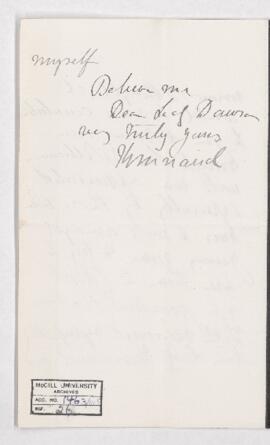 myself
Believe me
Dear Lady Dawson
very truly yours
McGILL UNIVERSITY
ARCHIVES
ACC. NO. 1463
REF.